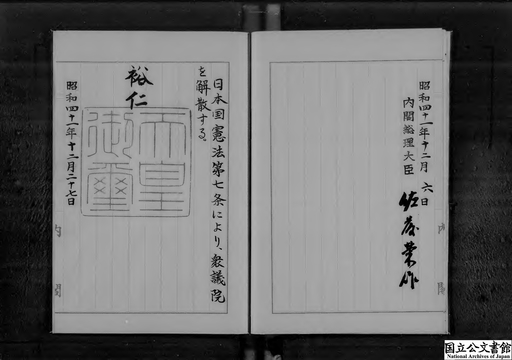 昭和四十一年十二月 六日
内閣総理大臣
佐藤榮作
日本国憲法第七条により、衆議院
を解散する。
裕仁
天皇御璽
昭和四十一年十二月二十七日
国立公文書館
National Archives of Japan